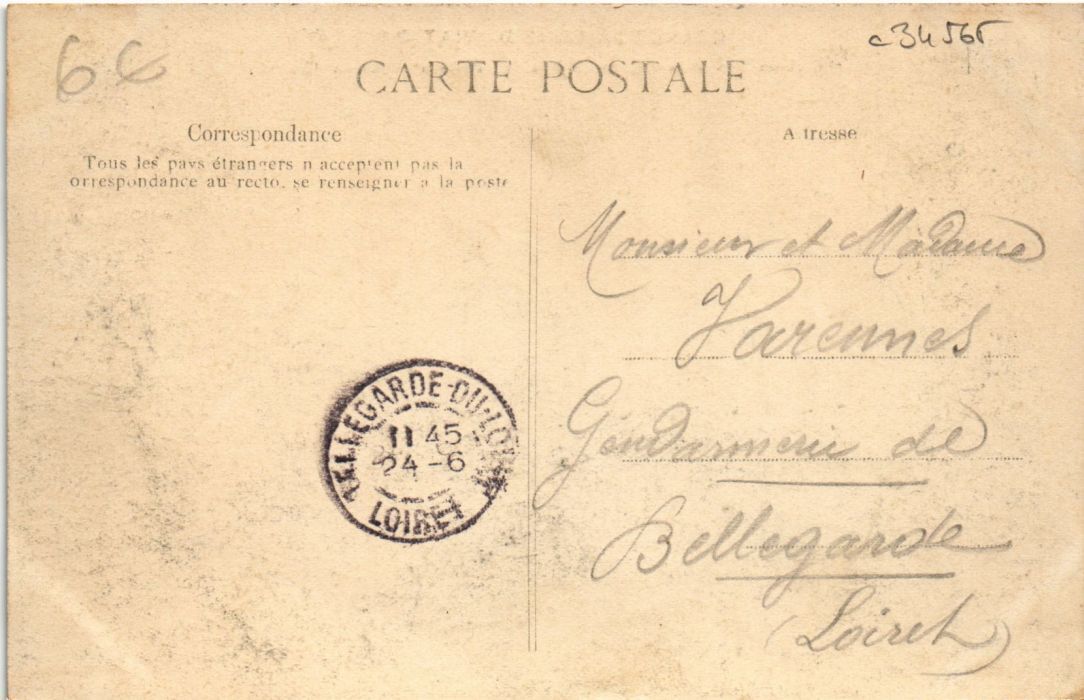 6€
c34565
CARTE POSTALE
Correspondance
Tous les pays étrangers n acceptent pas la
orrespondance au recto, se renseigner a la poste
A resse
Monsieur et Madame
Varennes
Gendarmerie de
Bellegarde
(Loiret)
BELLEGARDE-DU-LOIRET
11 45
24 -6
LOIRET